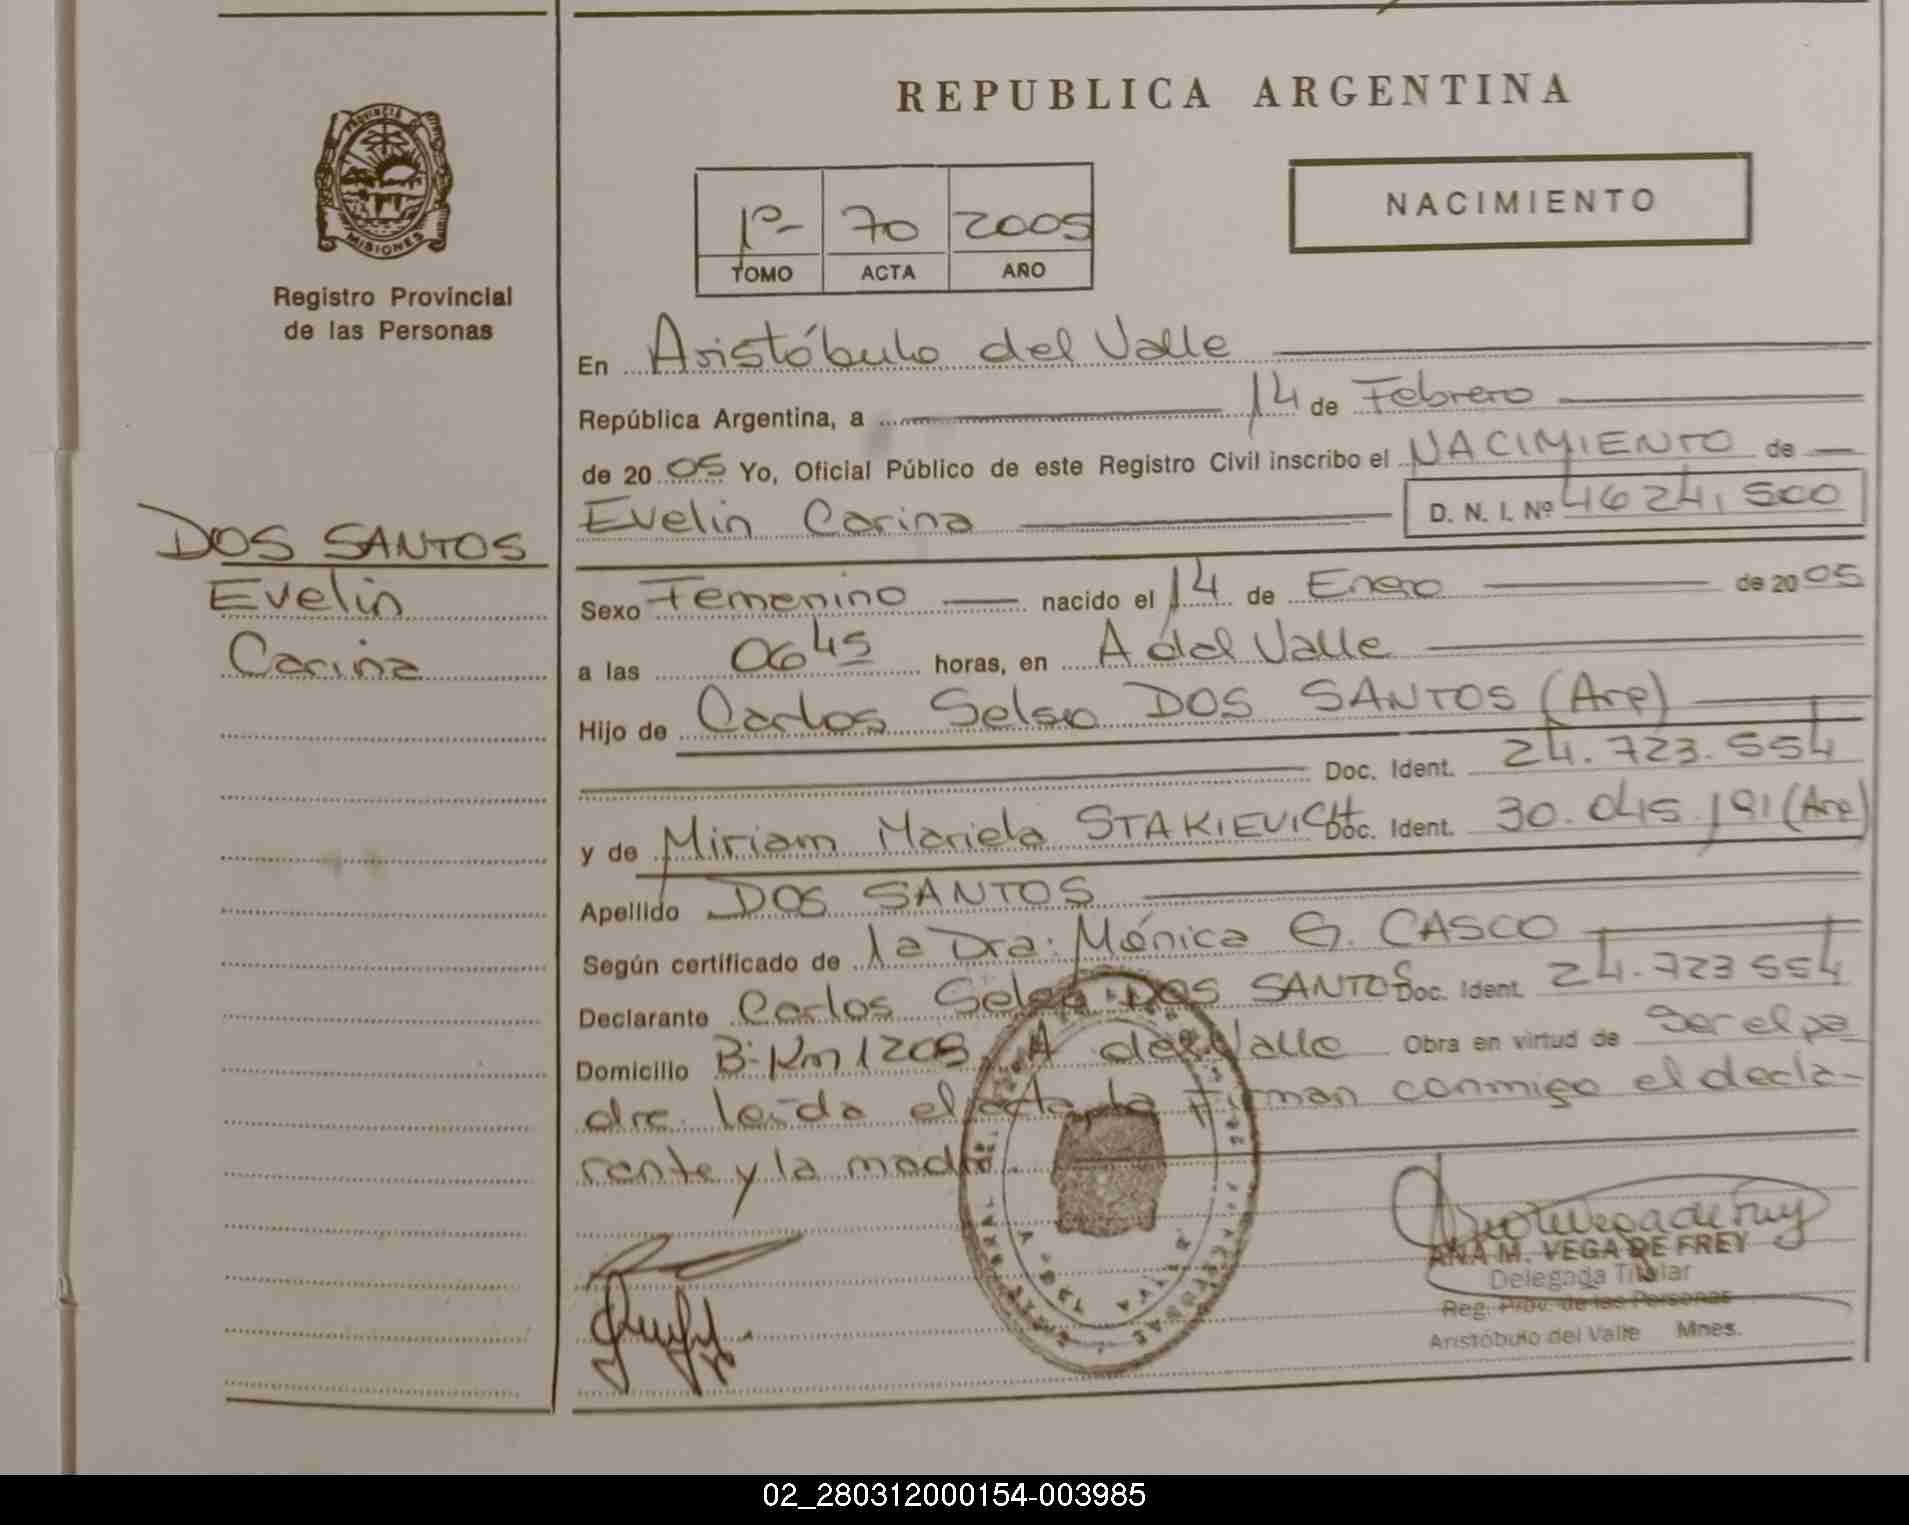 REPUBLICA ARGENTINA
PROVINCIA DE
MISIONES
Registro Provincial
de las Personas
1º- 70 2005
TOMO ACTA AÑO
NACIMIENTO
En Aristóbulo del Valle
República Argentina, a 14 de Febrero
de 20 05 Yo, Oficial Público de este Registro Civil inscribo el NACIMIENTO de
Evelin Carina D. N. I. Nº 46 241, 500
DOS SANTOS
Evelin
Carina
Sexo Femenino nacido el 14 de Enero de 20 05
a las 06 45 horas, en A del Valle
Hijo de Carlos Selso DOS SANTOS (Arg)
Doc. Ident. 24.723.554
y de Miriam Mariela STAKIEVICH Doc. Ident. 30.045.191 (Arg)
Apellido DOS SANTOS
Según certificado de la Dra: Mónica G. CASCO
Declarante Carlos Selso DOS SANTOS Doc. Ident. 24.723 554
Domicilio B: Km 1208, A del Valle Obra en virtud de Ser el pa
dre. leída el acta la firman conmigo el decla-
rante y la madre.
ANA M. VEGA DE FREY
Delegada Titular
Reg. Prov. de las Personas
Aristóbulo del Valle Mnes.
02_280312000154-003985